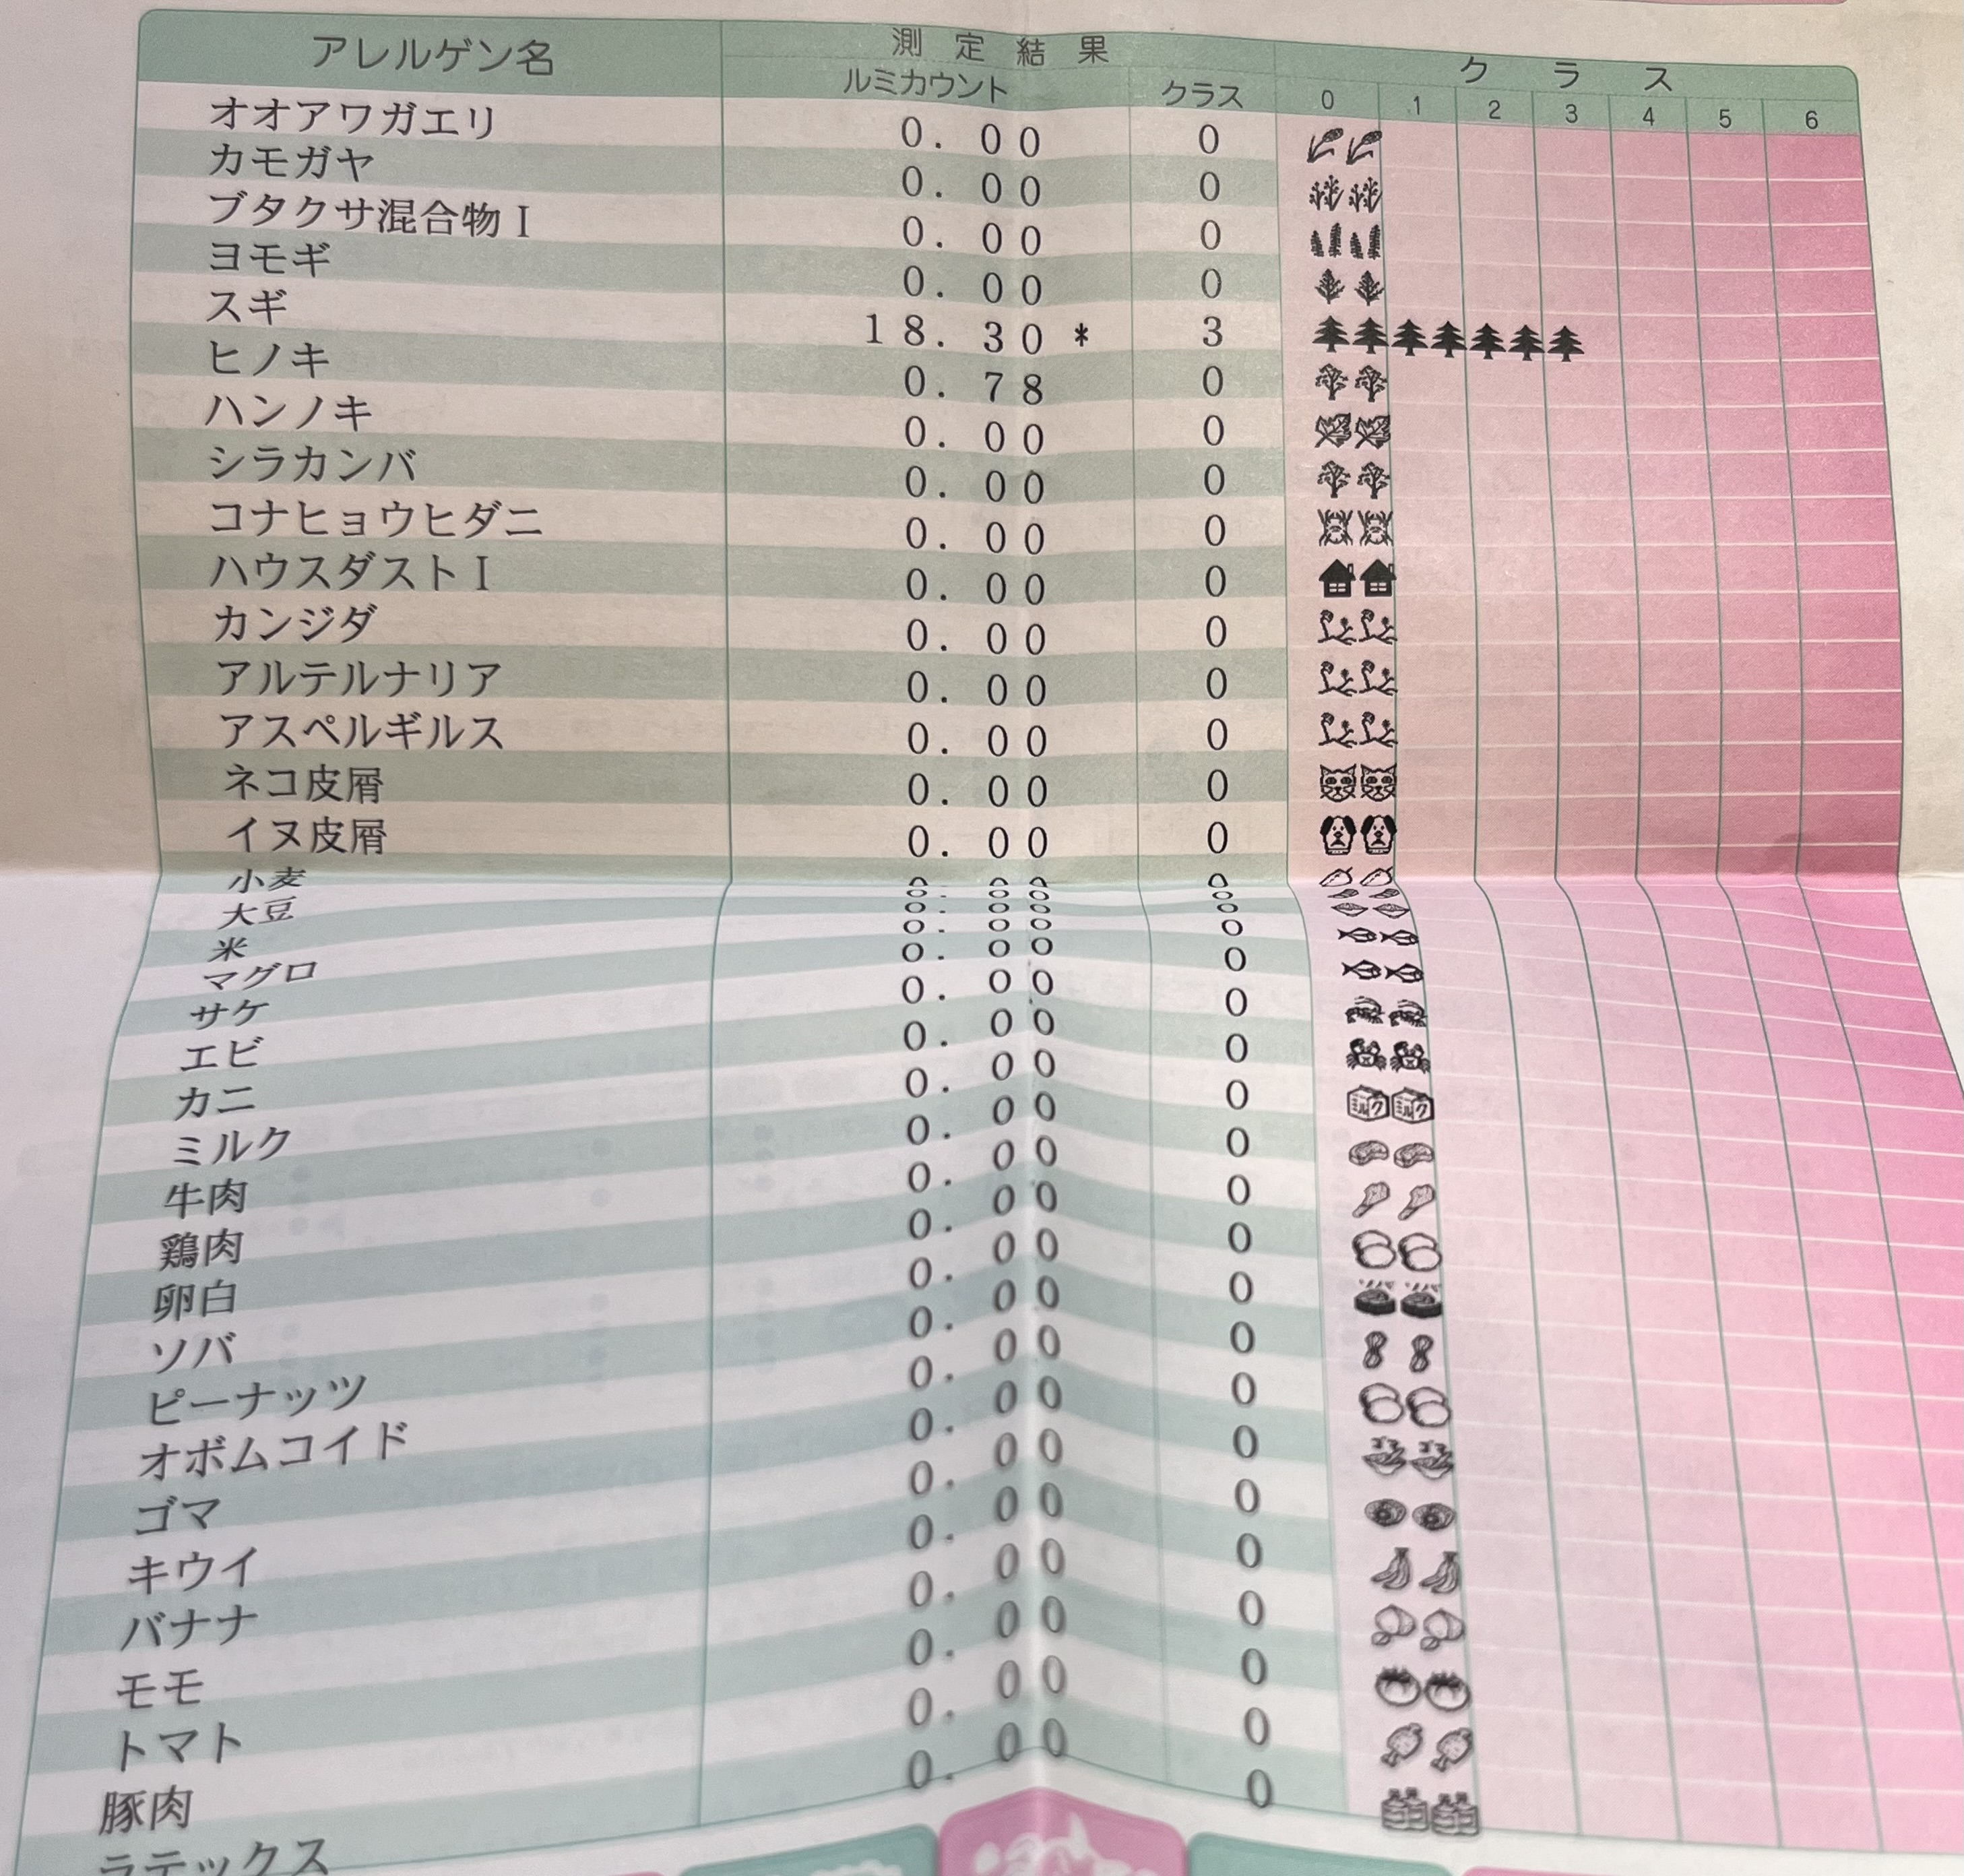 アレルゲン名 測定結果 クラス
ルミカウント クラス 0 1 2 3 4 5 6
オオアワガエリ 0.00 0
カモガヤ 0.00 0
ブタクサ混合物Ⅰ 0.00 0
ヨモギ 0.00 0
スギ 18.30* 3
ヒノキ 0.78 0
ハンノキ 0.00 0
シラカンバ 0.00 0
コナヒョウヒダニ 0.00 0
ハウスダストⅠ 0.00 0
カンジダ 0.00 0
アルテルナリア 0.00 0
アスペルギルス 0.00 0
ネコ皮屑 0.00 0
イヌ皮屑 0.00 0
小麦 0.00 0
大豆 0.00 0
米 0.00 0
マグロ 0.00 0
サケ 0.00 0
エビ 0.00 0
カニ 0.00 0
ミルク 0.00 0 ミルク ミルク
牛肉 0.00 0
鶏肉 0.00 0
卵白 0.00 0
ソバ 0.00 0
ピーナッツ 0.00 0
オボムコイド 0.00 0
ゴマ 0.00 0
キウイ 0.00 0
バナナ 0.00 0
モモ 0.00 0
トマト 0.00 0
豚肉 0.00 0
ラテックス 0.00 0